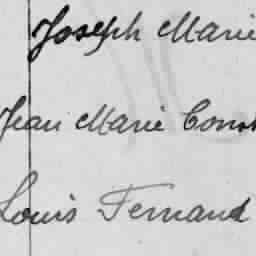 Joseph Marie
Jean Marie Const
Louis Fernand